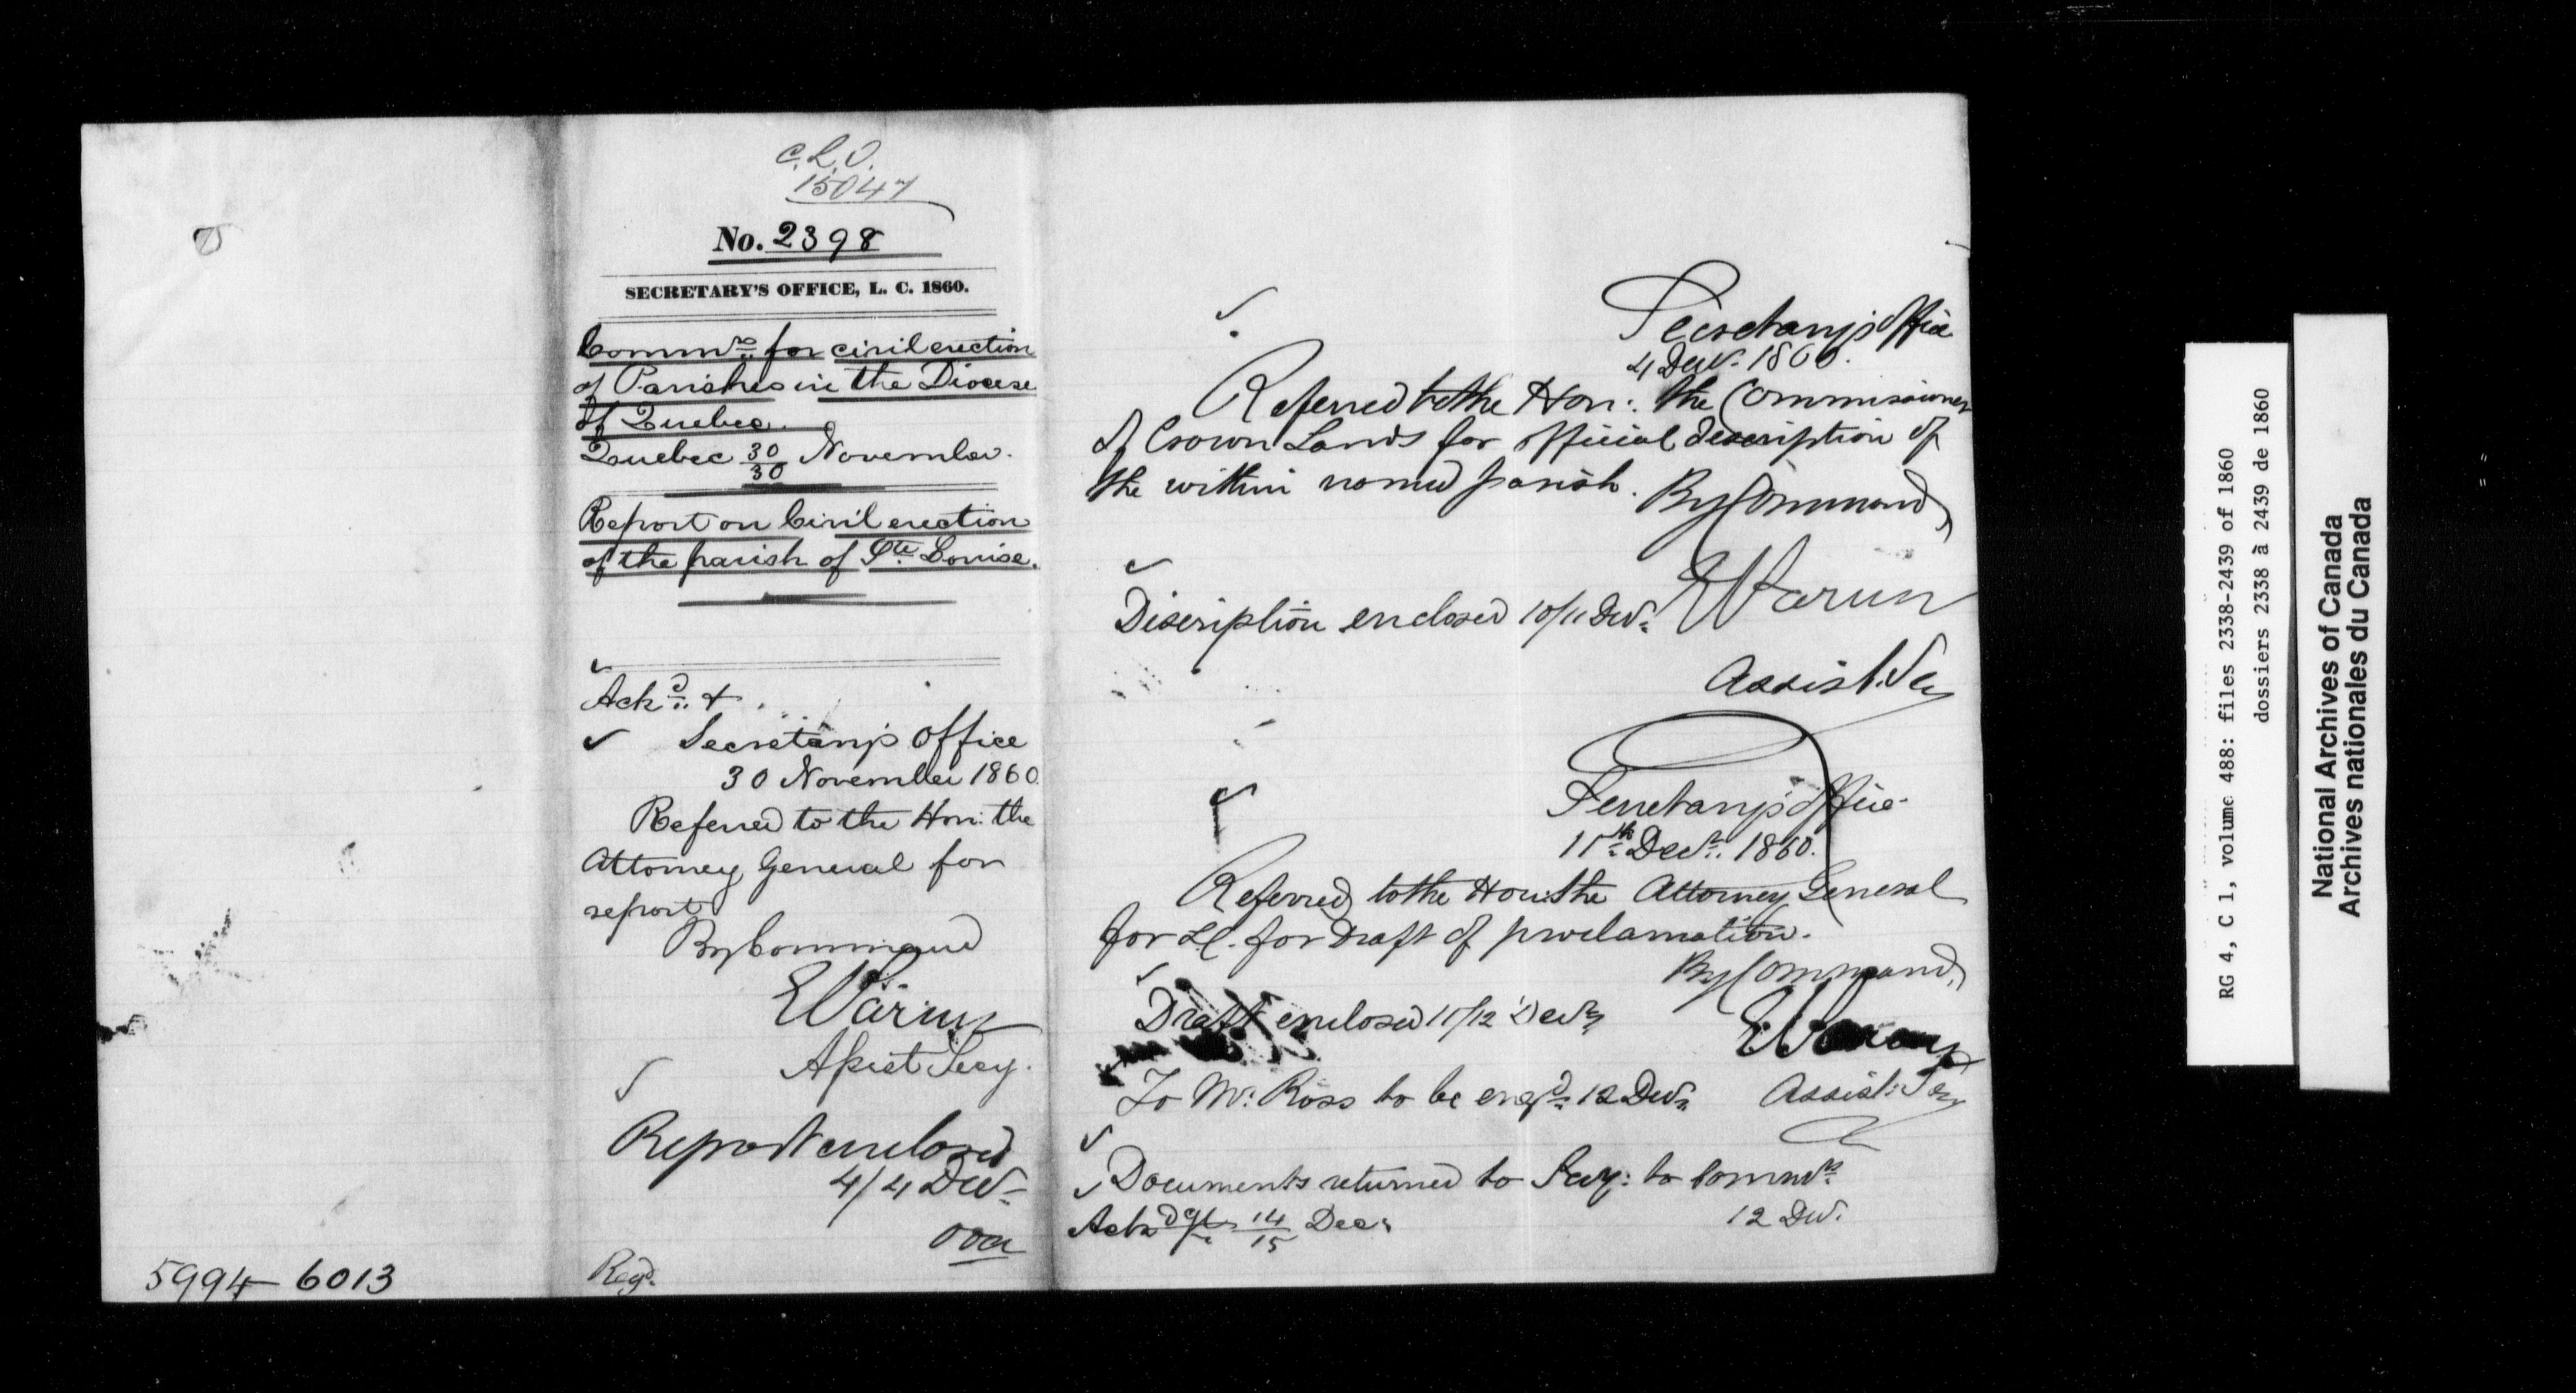 C.L.O.
15047
No. 2398
SECRETARY'S OFFICE, L. C. 1860.
Commrs. for civil erection
of Parishes in the Diocese
of Quebec.
Quebec 30/30 November.
Report on Civil erection
of the parish of Ste. Louise.
Ackd. &
Secretary's Office
30 November 1860.
Referred to the Hon: the
Attorney General for
report
By Command
Assist Secy.
Report enclosed
4/4 Decr.
over
Regd.
5994-6013
Secretary's Office
4 Decr. 1860.
Referred to the Hon: the Commissioner
of Crown Lands for official description of
the within named parish. By Command,
Discription enclosed 10/11 Decr.
Assist. Secy
Secretary's Office
11th Decr. 1860.
Referred to the Hon: the Attorney General
for LC. for Draft of proclamation.
By Command,
Draft enclosed 11/12 Decr.
To Mr. Ross to be engd. 12 Decr. Assist: Secy
Documents returned to Secy: to Commrs.
12 Decr.
Ackd 14/15 Dec.
RG 4, C 1, volume 488: files 2338-2439 of 1860
dossiers 2338 à 2439 de 1860
National Archives of Canada
Archives nationales du Canada